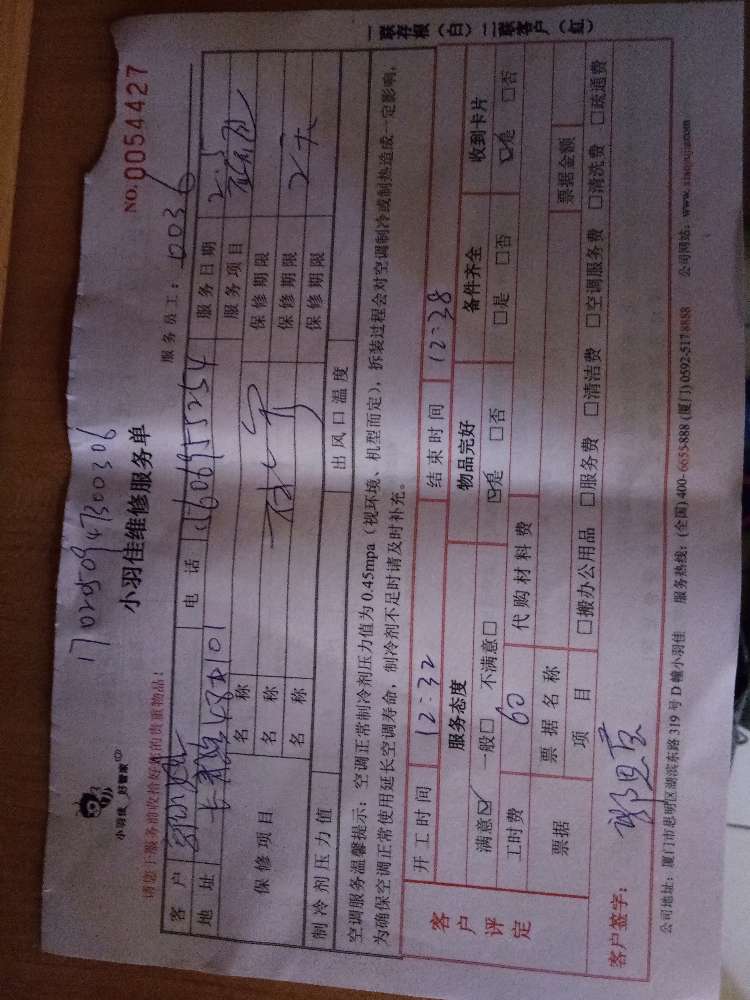 1702050947300306
小羽佳 好管家
小羽佳维修服务单
NO.0054427
请您于服务前收拾好您的贵重物品！
服务员工：0036
客户 电话 服务日期 2.5
地址 48#101 服务项目
保修项目 名称 保修期限
名称 保修期限
名称 保修期限
制冷剂压力值 出风口温度
空调服务温馨提示：空调正常制冷剂压力值为0.45mpa（视环境、机型而定），拆装过程会对空调制冷或制热造成一定影响，
为确保空调正常使用延长空调寿命，制冷剂不足时请及时补充。
客户评定 开工时间 12:32 结束时间 12:38
服务态度 物品完好 备件齐全 收到卡片
满意☑ 一般□ 不满意□ ☑是 □否 □是 □否 ☑是 □否
工时费 60 代购材料费
票据 票据名称 票据金额
项目 □搬办公用品 □服务费 □清洁费 □空调服务费 □清洗费 □疏通费
客户签字：
公司地址：厦门市思明区湖滨东路319号D幢小羽佳 服务热线：(全国)400-6655-888 (厦门)0592-517-8888 公司网站：www.xiaoyujia.com
一联存根（白）二联客户（红）